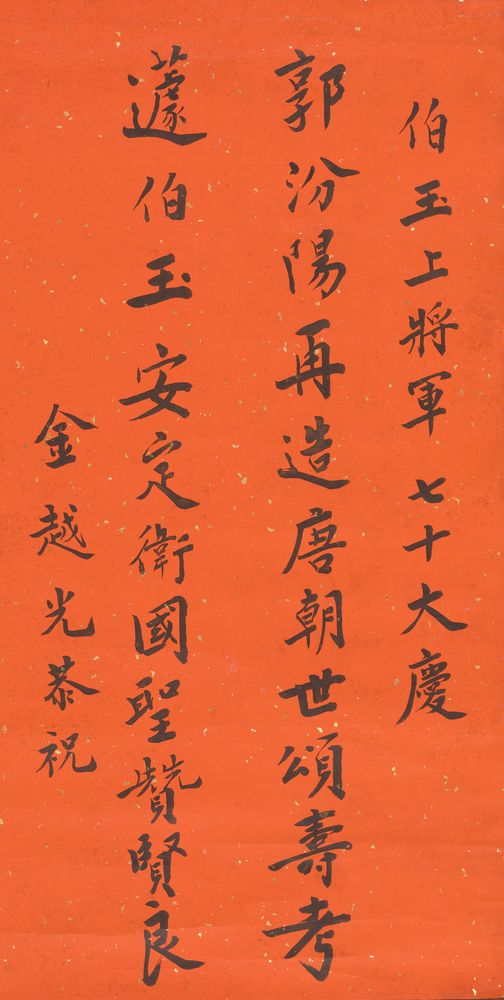 伯玉上將軍七十大慶
郭汾陽再造唐朝世頌壽考
蘧伯玉安定衛國聖贊賢良
金越光恭祝